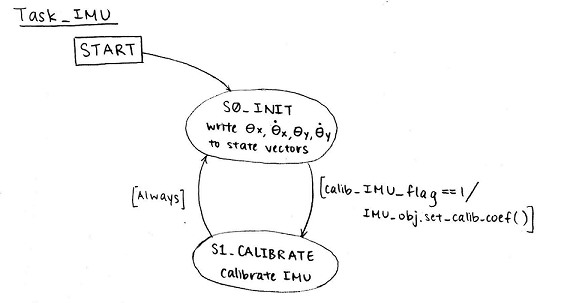 Task_IMU
START
S0_INIT
write θx, θ̇x, θy, θ̇y
to state vectors
[Always]
[calib_IMU_flag == 1/
IMU_obj.set_calib_coef()]
S1_CALIBRATE
Calibrate IMU